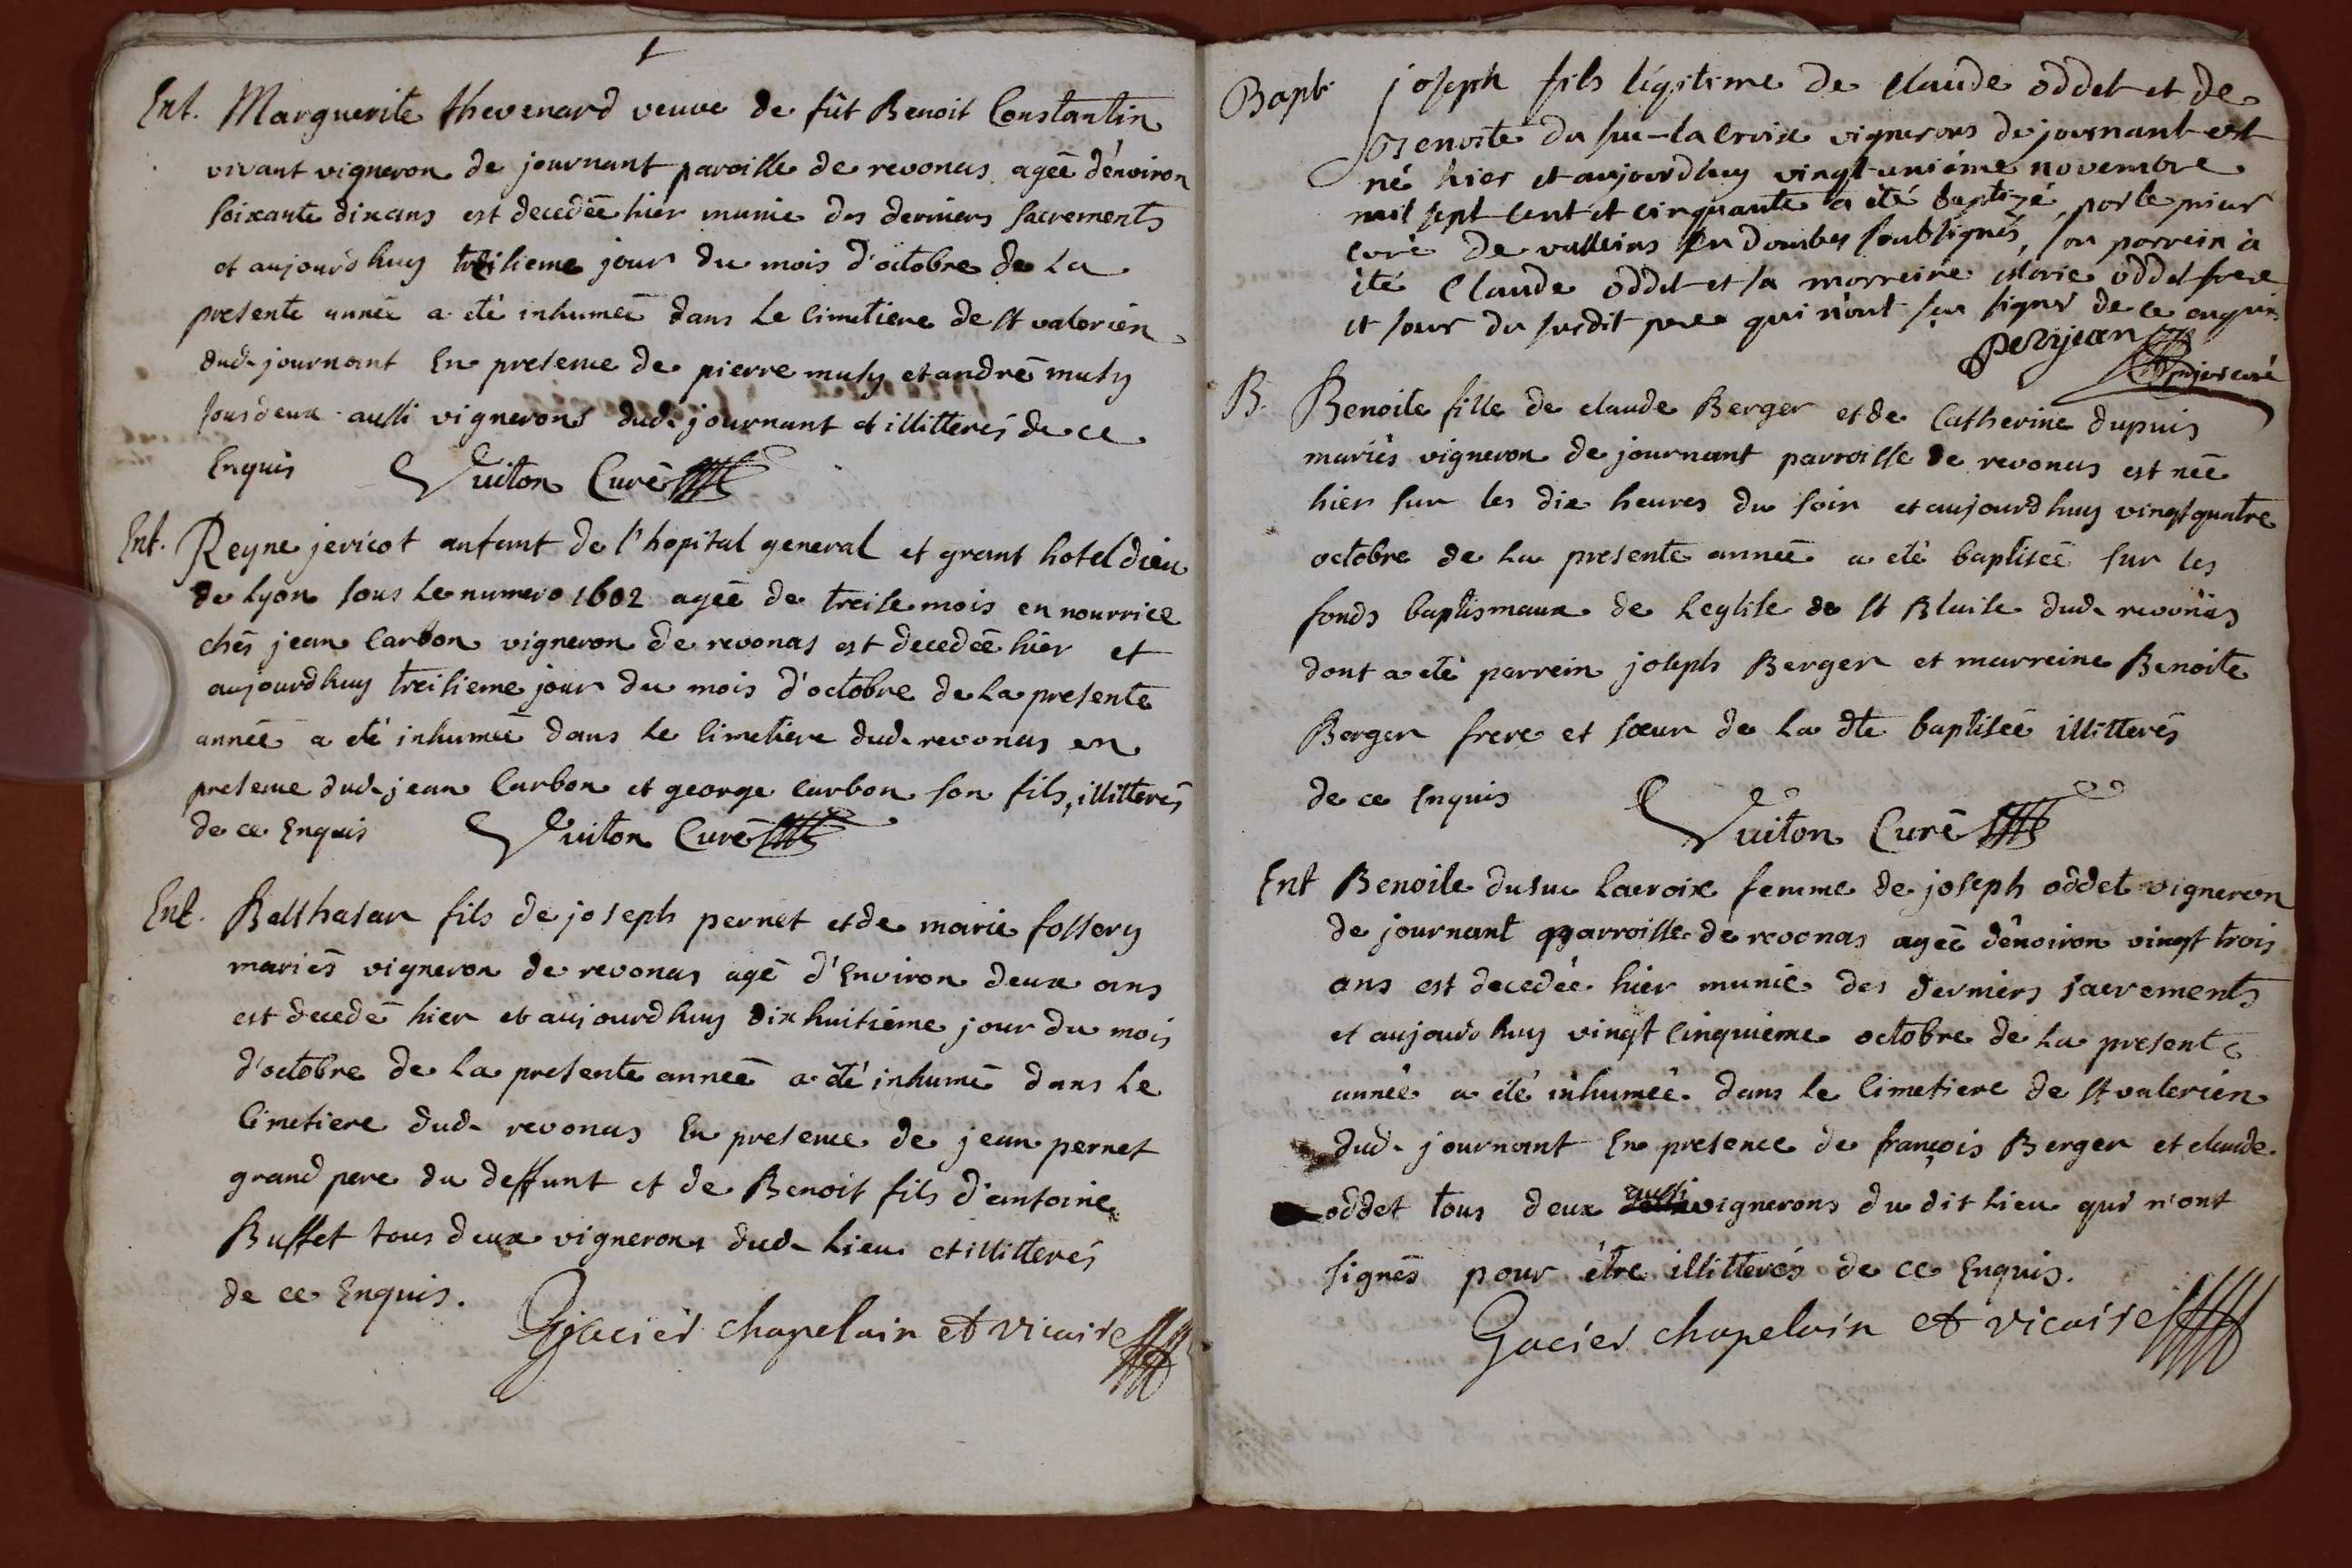 Ent. Marguerite thevenard veuve de fût Benoit Constantin
vivant vigneron de journant paroisse de revonas agée d'environ
soixante dix ans est decedée hier munie des derniers sacrements
et aujourd huy treisieme jour du mois d'octobre de La
presente année a eté inhumée dans Le Cimetiere de st valerien
dud. journant En presence de pierre musy et andré musy
tous deux aussi vignerons dud. journant et illitterés de ce
Enquis Vuiton Curé
Ent. Reyne jericot anfant de l'hopital general et grant hotel dieu
de Lyon sous Le numero 1602 agée de treise mois en nourrice
chés jean Carbon vigneron de revonas est decedée hier et
aujourdhuy treisieme jour du mois d'octobre de La presente
année a eté inhumée dans Le Cimetiere dud. revonas en
presence dud. jean Carbon et george Carbon son fils, illitterés
de ce Enquis Vuiton Curé
Ent. Balthasar fils de joseph pernet et de marie fossery
mariés vigneron de revonas agé d'Environ deux ans
est decedé hier et aujourdhuy dix huitiéme jour du mois
d'octobre de La presente année a eté inhumé dans Le
Cimetiere dud. revonas En presence de jean pernet
grand pere du deffunt et de Benoit fils d'antoine
Buffet tous deux vignerons dud. Lieu et illitterés
de ce Enquis.
Gacier chapelain et vicaire
Bapt. joseph fils légitime de Claude oddet et de
Benoite du suc-la Croix vignerons de journant est
né hier et aujourdhuy vingt-uniéme novembre
mil sept cent et cinquante a été baptizé par le prieur
curé de vallins En dombes soubsignés, son parrein à
été Claude oddet et sa marreine Marie oddet frere
et sœur du susdit pere qui n'ont sçu signer de ce enquis
Perrjean
prieur curé
B. Benoite fille de claude Berger et de Catherine dupuis
mariés vigneron de journant parroisse de revonas est née
hier sur les dix heures du soir et aujourdhuy vingt quatre
octobre de La presente année a eté baptisée sur les
fonds baptismaux de Leglise de st Blaise dud. revonas
dont a eté parrein joseph Berger et marreine Benoite
Berger frere et sœur de La dte baptisée illitterés
de ce Enquis
Vuiton Curé
Ent Benoite dusuc Lacroix femme de joseph oddet vigneron
de journant parroisse de revonas agée d'environ vingt trois
ans est decedée hier munie des derniers sacrements
et aujourdhuy vingt Cinquieme octobre de La presente
année a été inhumée dans Le Cimetiere de st valerien
dud. journant En presence de françois Berger et claude
oddet tous deux aussi vignerons du dit Lieu qui n'ont
signés pour être illitterés de ce Enquis.
Gacier chapelain et vicaire